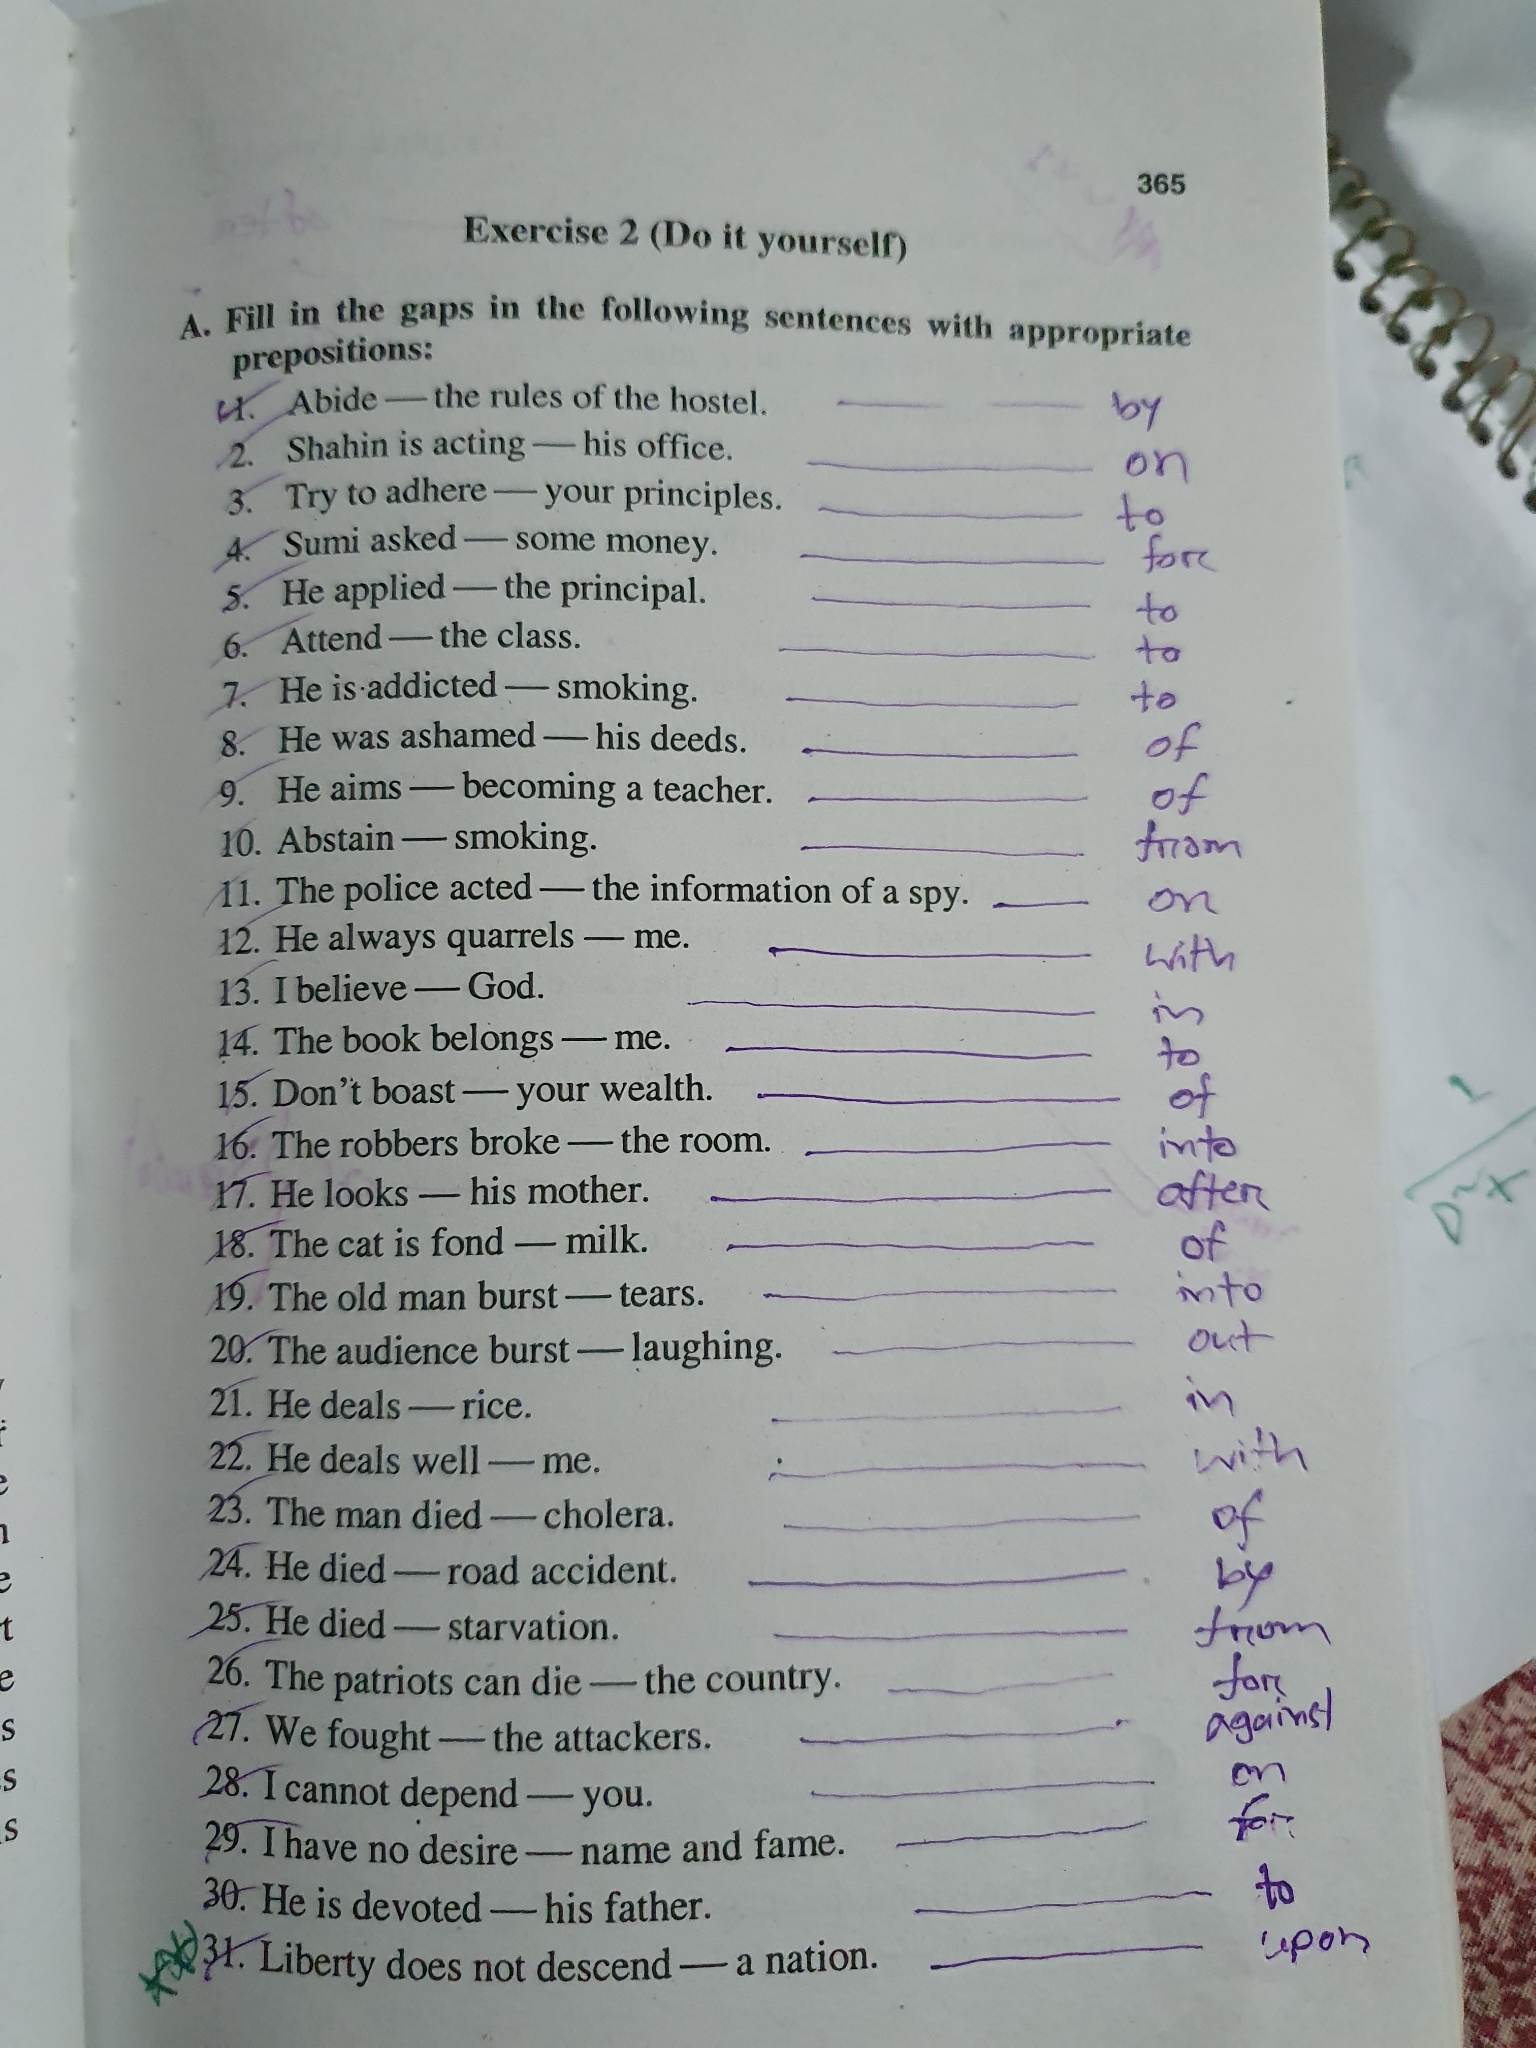 365
Exercise 2 (Do it yourself)
A. Fill in the gaps in the following sentences with appropriate
prepositions:
1. Abide — the rules of the hostel. by
2. Shahin is acting — his office. on
3. Try to adhere — your principles. to
4. Sumi asked — some money. for
5. He applied — the principal. to
6. Attend — the class. to
7. He is addicted — smoking. to
8. He was ashamed — his deeds. of
9. He aims — becoming a teacher. of
10. Abstain — smoking. from
11. The police acted — the information of a spy. on
12. He always quarrels — me. with
13. I believe — God. in
14. The book belongs — me. to
15. Don't boast — your wealth. of
16. The robbers broke — the room. into
17. He looks — his mother. after
18. The cat is fond — milk. of
19. The old man burst — tears. into
20. The audience burst — laughing. out
21. He deals — rice. in
22. He deals well — me. with
23. The man died — cholera. of
24. He died — road accident. by
25. He died — starvation. from
26. The patriots can die — the country. for
27. We fought — the attackers. against
28. I cannot depend — you. on
29. I have no desire — name and fame. for
30. He is devoted — his father. to
31. Liberty does not descend — a nation. upon